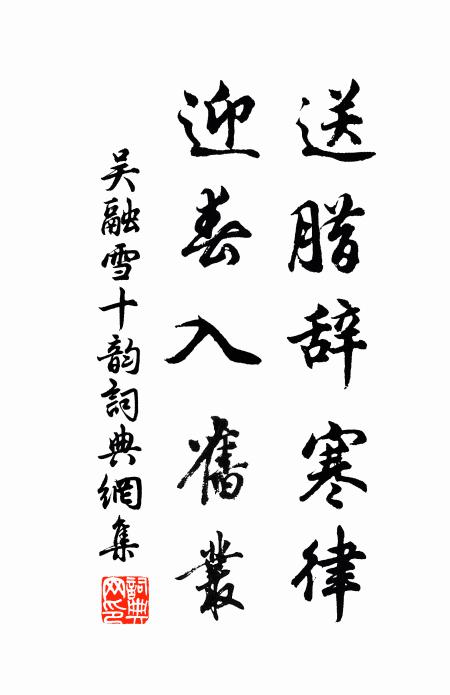 送腊辞寒律
迎春入舊叢
吴融雪十韵詞典網集
詞典網印